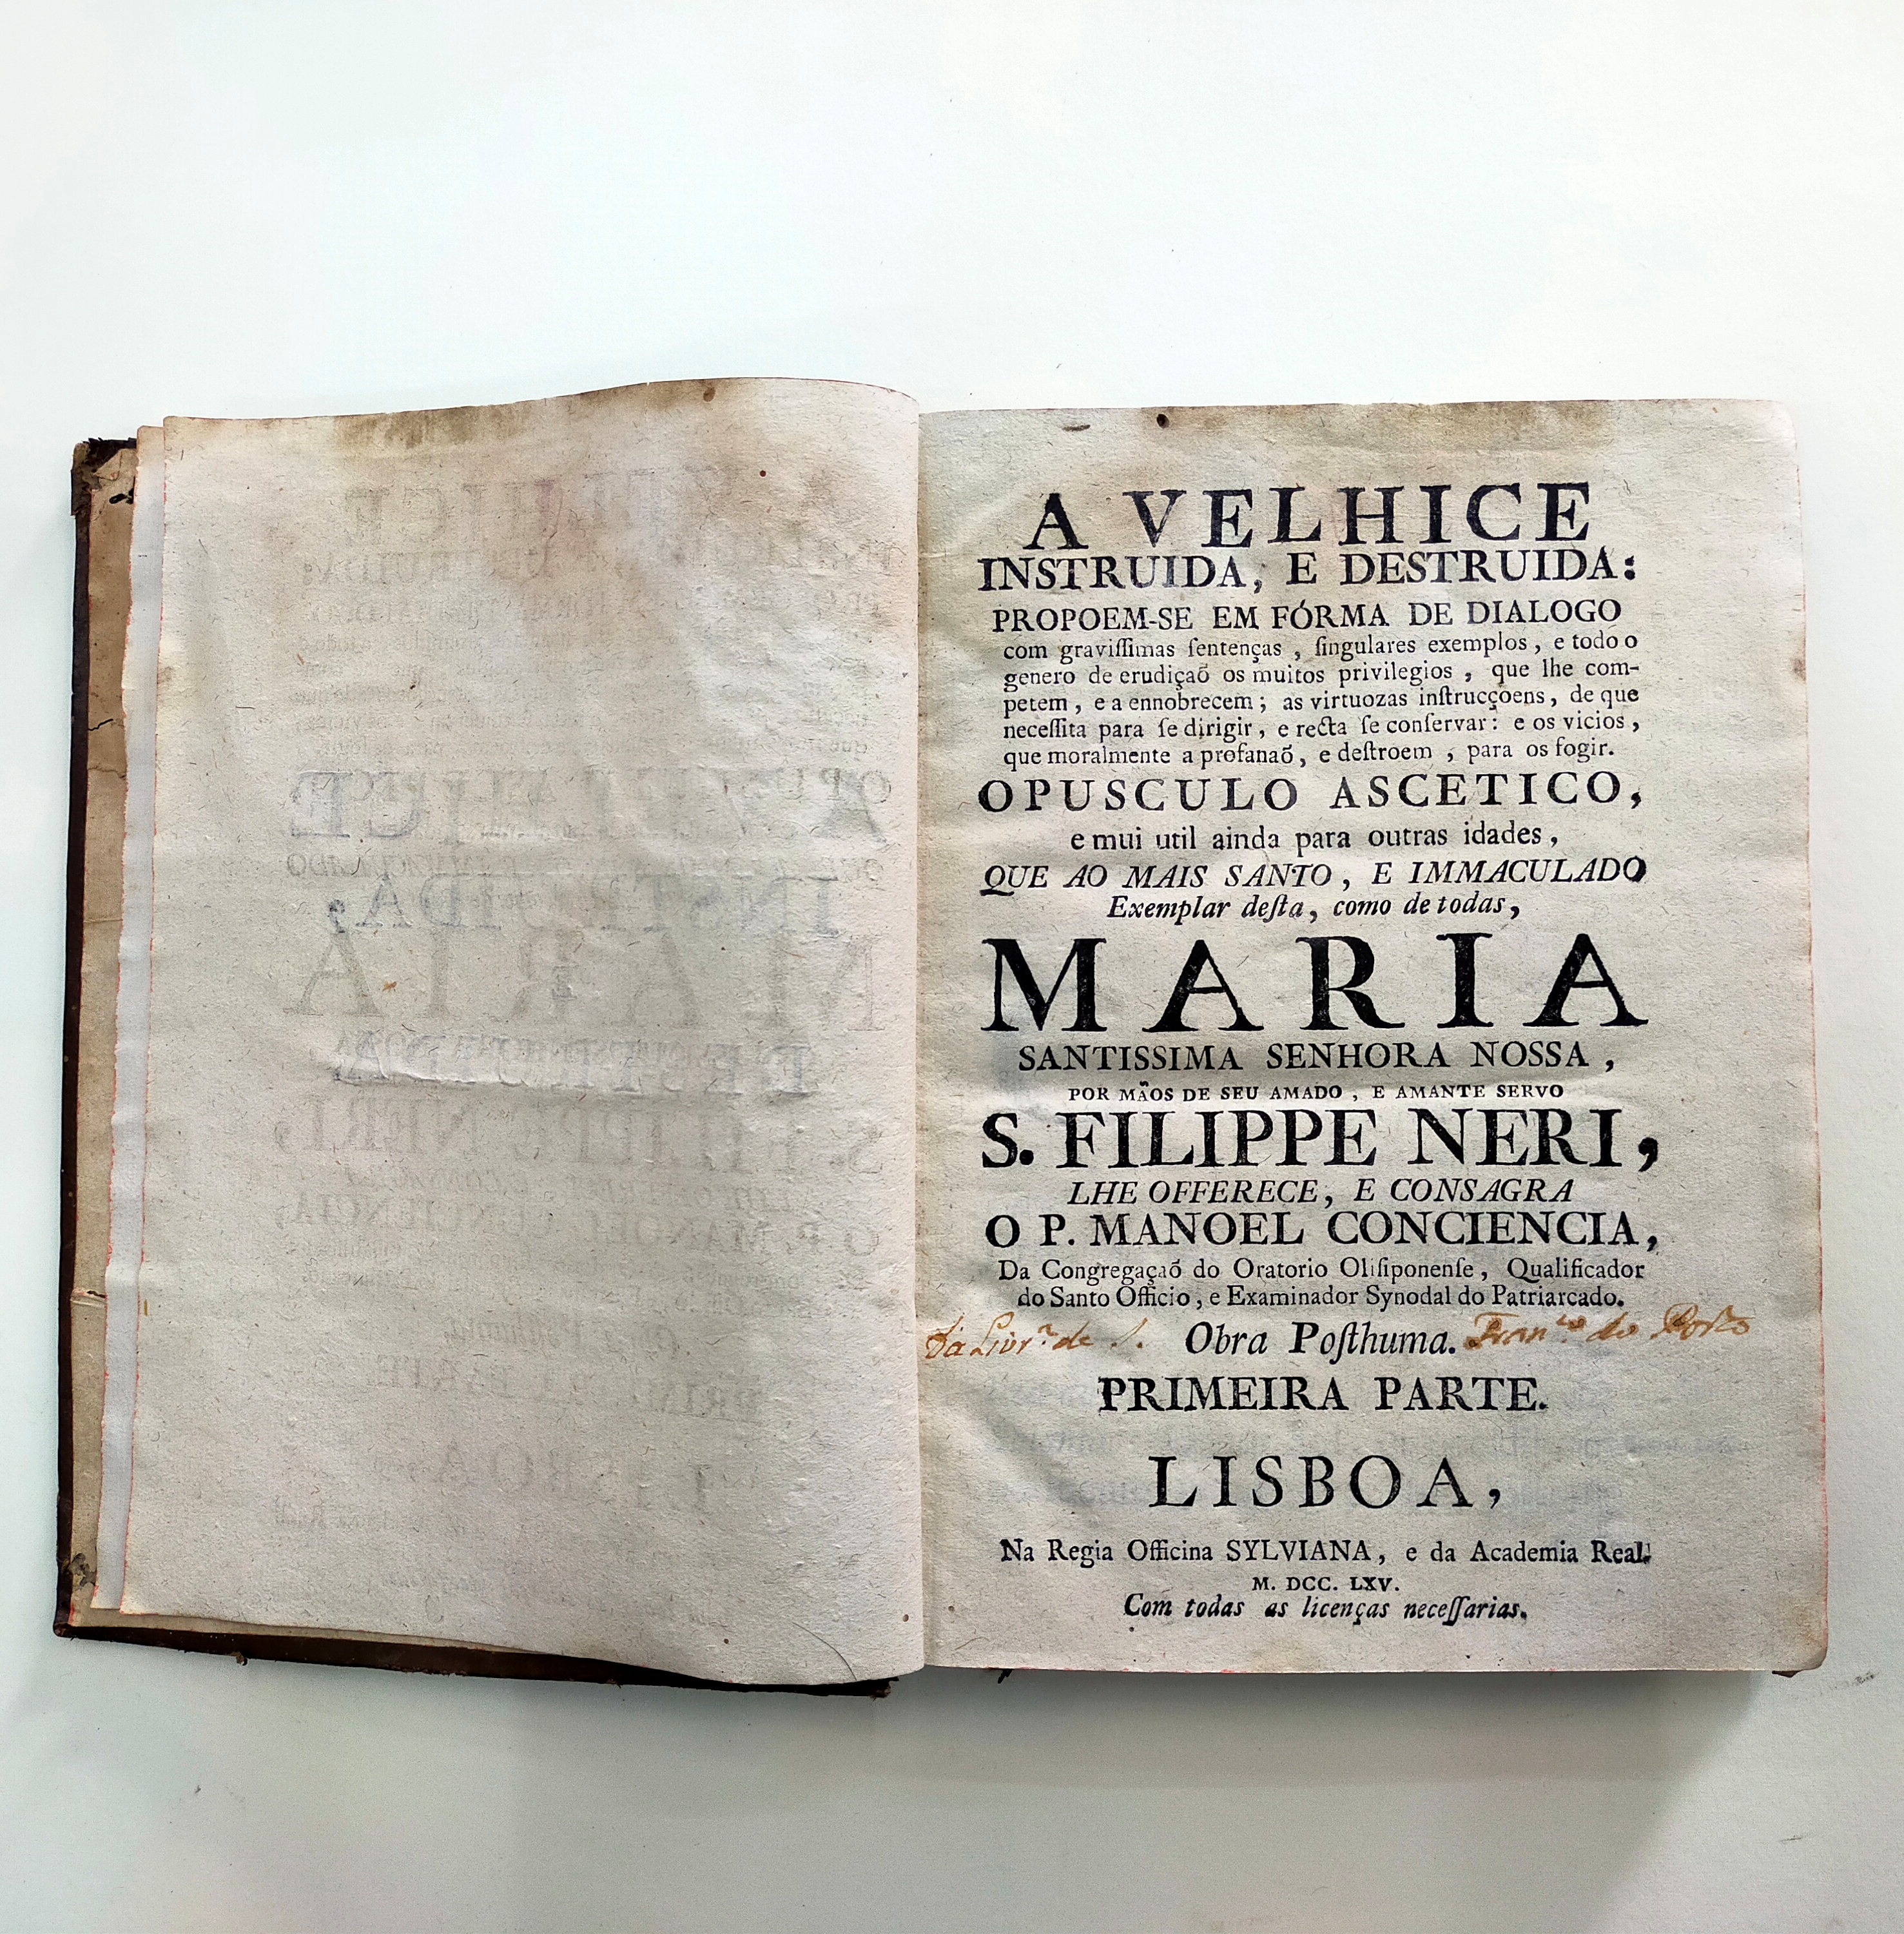 A VELHICE
INSTRUIDA, E DESTRUIDA:
PROPOEM-SE EM FÓRMA DE DIALOGO
com graviſſimas ſentenças, ſingulares exemplos, e todo o
genero de erudiçaõ os muitos privilegios, que lhe com-
petem, e a ennobrecem; as virtuozas inſtrucçoens, de que
neceſſita para ſe dirigir, e recta ſe conſervar: e os vicios,
que moralmente a profanaõ, e deſtroem, para os fogir.
OPUSCULO ASCETICO,
e mui util ainda para outras idades,
QUE AO MAIS SANTO, E IMMACULADO
Exemplar deſta, como de todas,
MARIA
SANTISSIMA SENHORA NOSSA,
POR MÃOS DE SEU AMADO, E AMANTE SERVO
S. FILIPPE NERI,
LHE OFFERECE, E CONSAGRA
O P. MANOEL CONCIENCIA,
Da Congregaçaõ do Oratorio Oliſiponenſe, Qualificador
do Santo Officio, e Examinador Synodal do Patriarcado.
da Livr.ª de S. Obra Poſthuma. Fran.co do Porto
PRIMEIRA PARTE.
LISBOA,
Na Regia Officina SYLVIANA, e da Academia Real.
M. DCC. LXV.
Com todas as licenças neceſſarias.